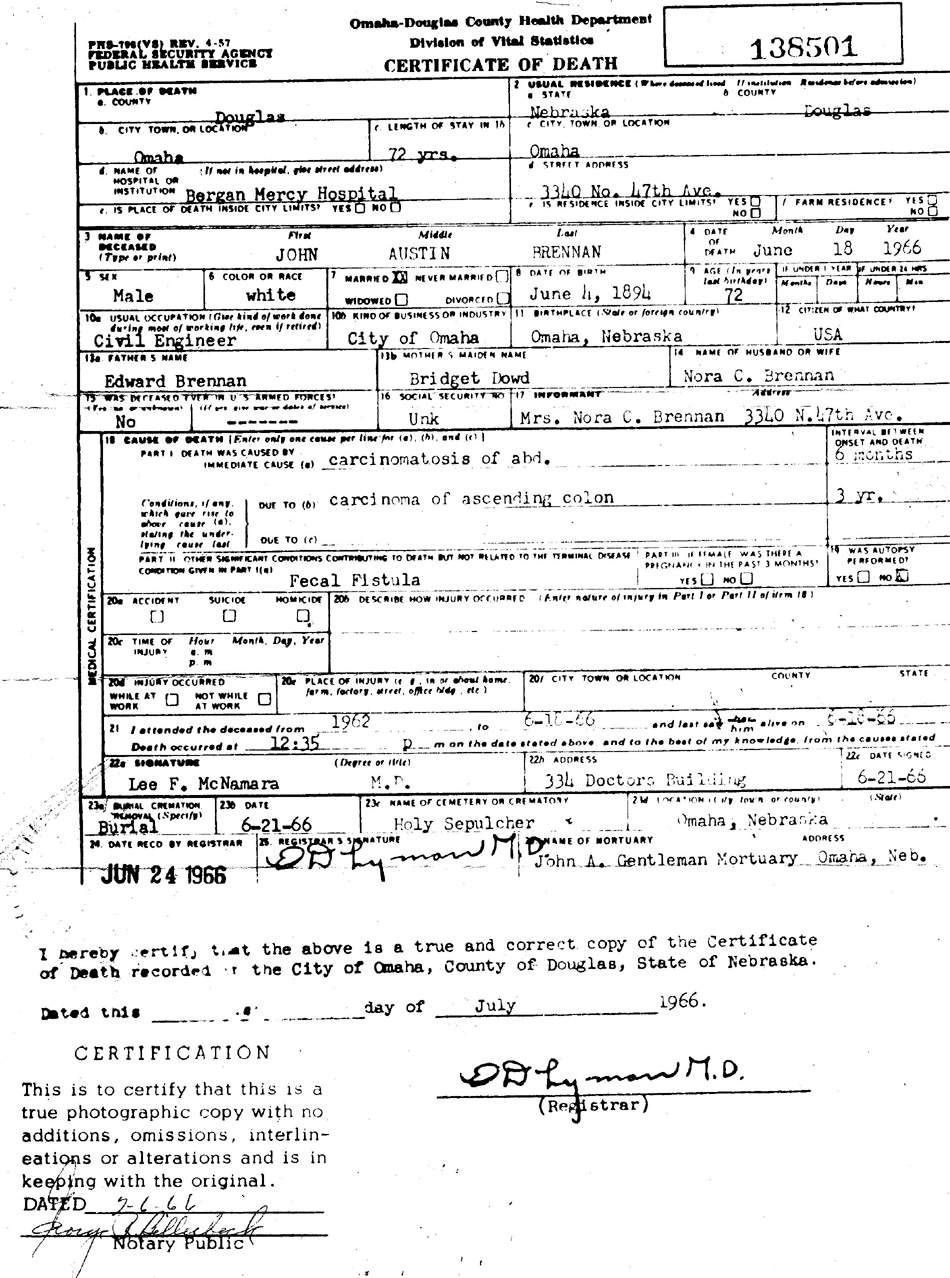 Omaha-Douglas County Health Department
PHS-798(VS) REV. 4-57
FEDERAL SECURITY AGENCY
PUBLIC HEALTH SERVICE
Division of Vital Statistics
CERTIFICATE OF DEATH
138501
1. PLACE OF DEATH
a. COUNTY
Douglas
2 USUAL RESIDENCE (Where deceased lived If institution Residence before admission)
a STATE b COUNTY
Nebraska Douglas
b. CITY TOWN, OR LOCATION c. LENGTH OF STAY IN 1b c CITY, TOWN OR LOCATION
Omaha 72 yrs. Omaha
d. NAME OF HOSPITAL OR INSTITUTION (If not in hospital, give street address) d STREET ADDRESS
Bergan Mercy Hospital 3340 No. 47th Ave.
e. IS PLACE OF DEATH INSIDE CITY LIMITS? YES NO e IS RESIDENCE INSIDE CITY LIMITS? YES NO f FARM RESIDENCE? YES NO
3 NAME OF DECEASED (Type or print) First Middle Last 4 DATE OF DEATH Month Day Year
JOHN AUSTIN BRENNAN June 18 1966
5 SEX 6 COLOR OR RACE 7 MARRIED NEVER MARRIED WIDOWED DIVORCED 8 DATE OF BIRTH 9 AGE (In years last birthday) IF UNDER 1 YEAR Months Days IF UNDER 24 HRS Hours Min
Male white June 4, 1894 72
10a USUAL OCCUPATION (Give kind of work done during most of working life, even if retired) 10b KIND OF BUSINESS OR INDUSTRY 11 BIRTHPLACE (State or foreign country) 12 CITIZEN OF WHAT COUNTRY?
Civil Engineer City of Omaha Omaha, Nebraska USA
13a FATHER'S NAME 13b MOTHER S MAIDEN NAME 14 NAME OF HUSBAND OR WIFE
Edward Brennan Bridget Dowd Nora C. Brennan
15 WAS DECEASED EVER IN U S ARMED FORCES? 16 SOCIAL SECURITY NO 17 INFORMANT Address
(Yes, no or unknown) (If yes give war or dates of service)
No ------- Unk Mrs. Nora C. Brennan 3340 N.47th Ave.
18 CAUSE OF DEATH [Enter only one cause per line for (a), (b), and (c)] INTERVAL BETWEEN ONSET AND DEATH
PART I DEATH WAS CAUSED BY
IMMEDIATE CAUSE (a) carcinomatosis of abd. 6 months
Conditions, if any, which gave rise to above cause (a), stating the underlying cause last
DUE TO (b) carcinoma of ascending colon 3 yr.
DUE TO (c)
PART II OTHER SIGNIFICANT CONDITIONS CONTRIBUTING TO DEATH BUT NOT RELATED TO THE TERMINAL DISEASE CONDITION GIVEN IN PART I(a)
Fecal Fistula
PART III IF FEMALE WAS THERE A PREGNANCY IN THE PAST 3 MONTHS? YES NO
19 WAS AUTOPSY PERFORMED? YES NO
MEDICAL CERTIFICATION
20a ACCIDENT SUICIDE HOMICIDE 20b DESCRIBE HOW INJURY OCCURRED (Enter nature of injury in Part I or Part II of item 18)
20c TIME OF INJURY Hour a. m p. m Month, Day, Year
20d INJURY OCCURRED WHILE AT WORK NOT WHILE AT WORK
20e PLACE OF INJURY (e g, in or about home, farm, factory, street, office bldg, etc)
20f CITY TOWN OR LOCATION COUNTY STATE
21 I attended the deceased from 1962 to 6-18-66 and last saw him alive on 6-18-66
Death occurred at 12:35 p m on the date stated above, and to the best of my knowledge, from the causes stated
22a SIGNATURE (Degree or title) 22b ADDRESS 22c DATE SIGNED
Lee F. McNamara M.D. 334 Doctors Building 6-21-66
23a BURIAL CREMATION REMOVAL (Specify) 23b DATE 23c NAME OF CEMETERY OR CREMATORY 23d LOCATION (City town or county) (State)
Burial 6-21-66 Holy Sepulcher Omaha, Nebraska
24. DATE RECD BY REGISTRAR 25. REGISTRAR'S SIGNATURE NAME OF MORTUARY ADDRESS
JUN 24 1966 D D Lyman M D John A. Gentleman Mortuary Omaha, Neb.
I hereby certify that the above is a true and correct copy of the Certificate
of Death recorded the City of Omaha, County of Douglas, State of Nebraska.
Dated this day of July 1966.
CERTIFICATION
This is to certify that this is a
true photographic copy with no
additions, omissions, interlin-
eations or alterations and is in
keeping with the original.
DATED 7-6-66
Notary Public
D D Lyman M.D.
(Registrar)